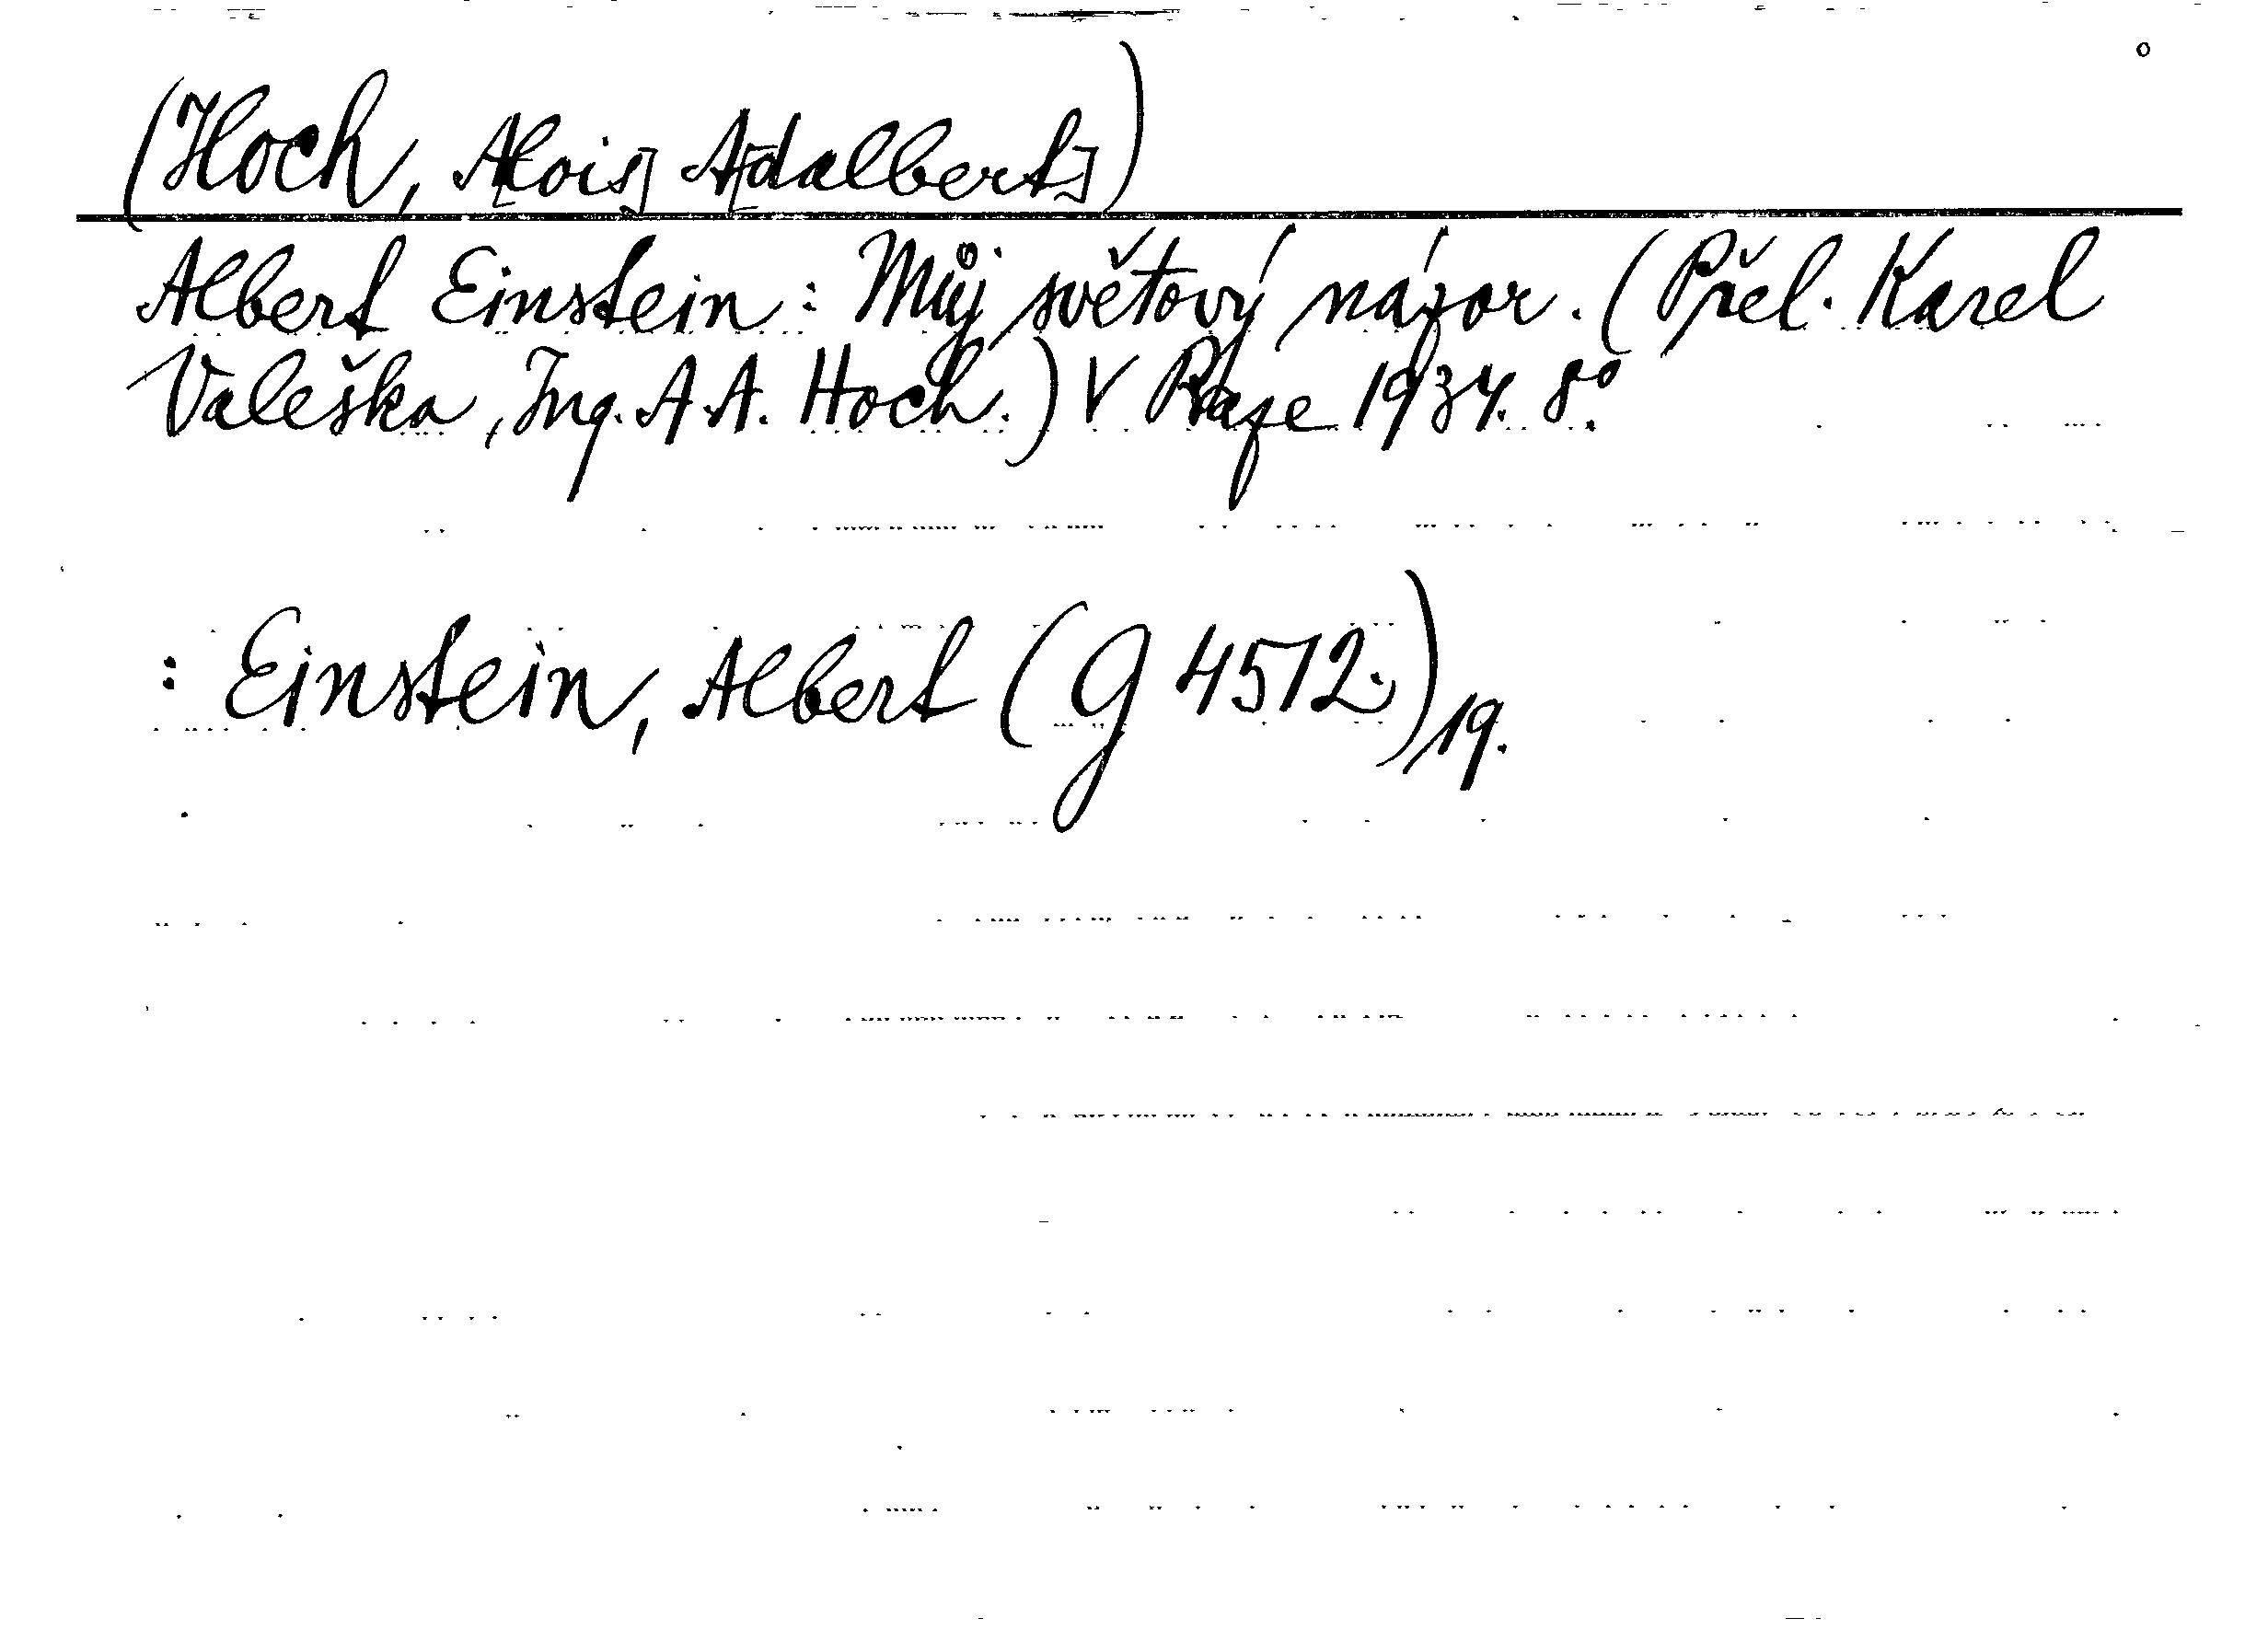 (Hoch, A[lois] A[dalbert])
Albert Einstein: Můj světový názor. (Přel. Karel
Valeška, Ing. A. A. Hoch.) V Praze 1934. 8°.
: Einstein, Albert (G 4572.)/19.